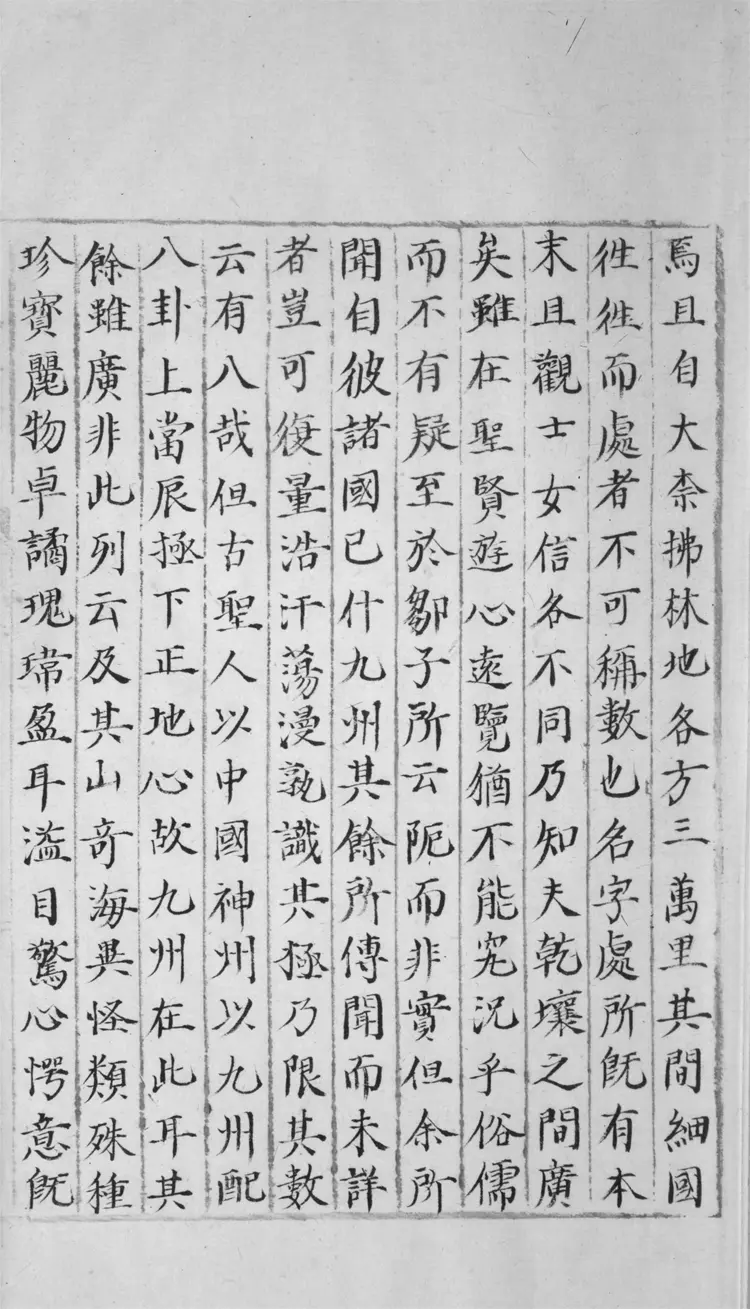 焉且自大柰拂林地各方三萬里其間細國
徃徃而處者不可稱數也名字處所旣有本
末且觀士女信各不同乃知夫乾壤之間廣
矣雖在聖賢遊心遠覽猶不能究況乎俗儒
而不有疑至於鄒子所云阨而非實但余所
聞自彼諸國已什九州其餘所傳聞而未詳
者豈可復量浩汗蕩漫孰識其極乃限其數
云有八哉但古聖人以中國神州以九州配
八卦上當辰極下正地心故九州在此耳其
餘雖廣非此列云及其山竒海異怪類殊種
珍寳麗物卓譎瑰瑺盈耳溢目驚心愕意旣